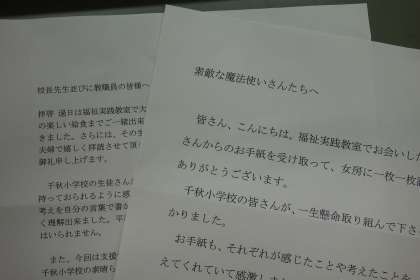 校長先生並びに教職員の皆様へ
拝啓 過日は福祉実践教室で大
の楽しい給食までご一緒出来
きました。さらには、その生
夫婦で嬉しく拝読させて頂
御礼申し上げます。
千秋小学校の生徒さん
持っておられるように感
考えを自分の言葉で書か
く理解出来ました。平
はいられません。
また、今回は支援
千秋小学校の素晴ら
素敵な魔法使いさんたちへ
皆さん、こんにちは。福祉実践教室でお会いした
さんからのお手紙を受け取って、女房に一枚一枚
ありがとうございます。
千秋小学校の皆さんが、一生懸命取り組んで下さ
かりました。
お手紙も、それぞれが感じたことや考えたことを
えてくれていて感激しま